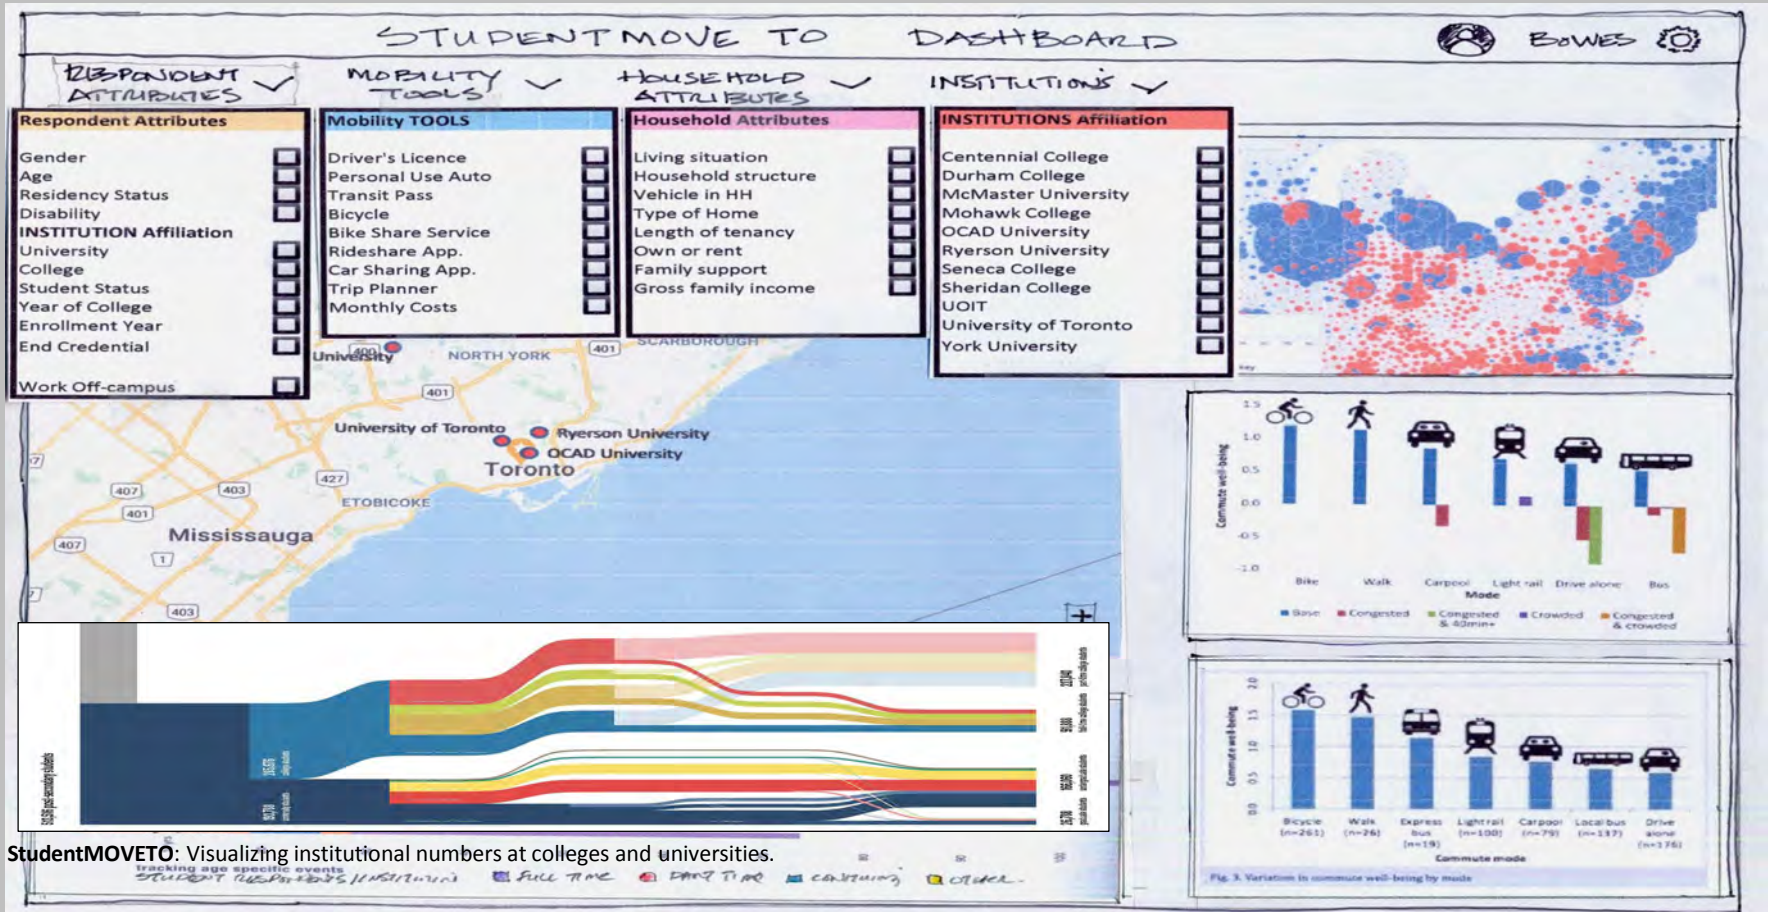 STUDENTMOVE TO DASHBOARD
BOWES
RESPONDENT ATTRIBUTES
MOBILITY TOOLS
HOUSEHOLD ATTRIBUTES
INSTITUTIONS
Respondent Attributes
Gender
Age
Residency Status
Disability
INSTITUTION Affiliation
University
College
Student Status
Year of College
Enrollment Year
End Credential
Work Off-campus
Mobility TOOLS
Driver's Licence
Personal Use Auto
Transit Pass
Bicycle
Bike Share Service
Rideshare App.
Car Sharing App.
Trip Planner
Monthly Costs
Household Attributes
Living situation
Household structure
Vehicle in HH
Type of Home
Length of tenancy
Own or rent
Family support
Gross family income
INSTITUTIONS Affiliation
Centennial College
Durham College
McMaster University
Mohawk College
OCAD University
Ryerson University
Seneca College
Sheridan College
UOIT
University of Toronto
York University
400
University
NORTH YORK
401
SCARBOROUGH
401
University of Toronto
Ryerson University
OCAD University
Toronto
427
407
403
401
ETOBICOKE
Mississauga
407
1
403
1.5
1.0
0.5
0.0
-0.5
-1.0
Commute well-being
Bike
Walk
Carpool
Light rail
Drive alone
Bus
Mode
Base
Congested
Congested & 40min+
Crowded
Congested & crowded
2.0
1.5
1.0
0.5
0.0
Commute well-being
Bicycle (n=261)
Walk (n=26)
Express bus (n=19)
Light rail (n=100)
Carpool (n=79)
Local bus (n=137)
Drive alone (n=176)
Commute mode
Fig. 3. Variation in commute well-being by mode
StudentMOVETO: Visualizing institutional numbers at colleges and universities.
tracking age specific events
STUDENT RESPONDENTS/INSTITUTION
FULL TIME
PART TIME
CONTINUING
OTHER